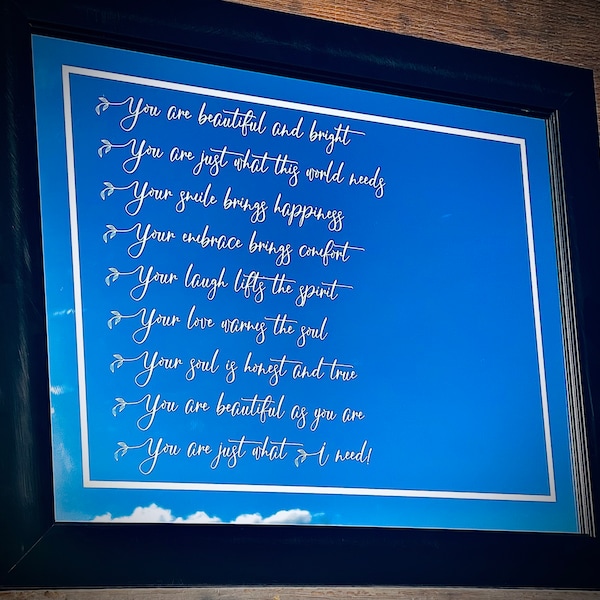 You are beautiful and bright
You are just what this world needs
Your smile brings happiness
Your embrace brings comfort
Your laugh lifts the spirit
Your love warms the soul
Your soul is honest and true
You are beautiful as you are
You are just what i need!